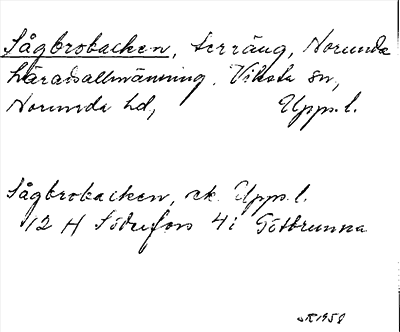 Sågbrobacken, terräng, Norunda
häradsallmänning. Viksta sn,
Norunda hd, Upps.l.
Sågbrobacken, ek. Upps.l.
12 H Söderfors 4i Götbrunna
1958